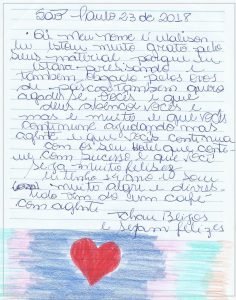 São Paulo 23 de 2018
Oi meu nome é Walison
eu estou muito grato pelo
seus material porque eu
estava precisando e
também obrigado pelos ovos
de páscoa também quero
agradecer vocês e que
deus abençoe vocês e
mas e muito e que vocês
continuem ajudando mas
agente e que vocês continua
com os seu hotel que conti-
nue com sucesso e que você
seja muito felizes
eu tenho anos e sou
muito alegre e diver
tido vim do um café
com agente
tchau Beijos
e sejam felizes